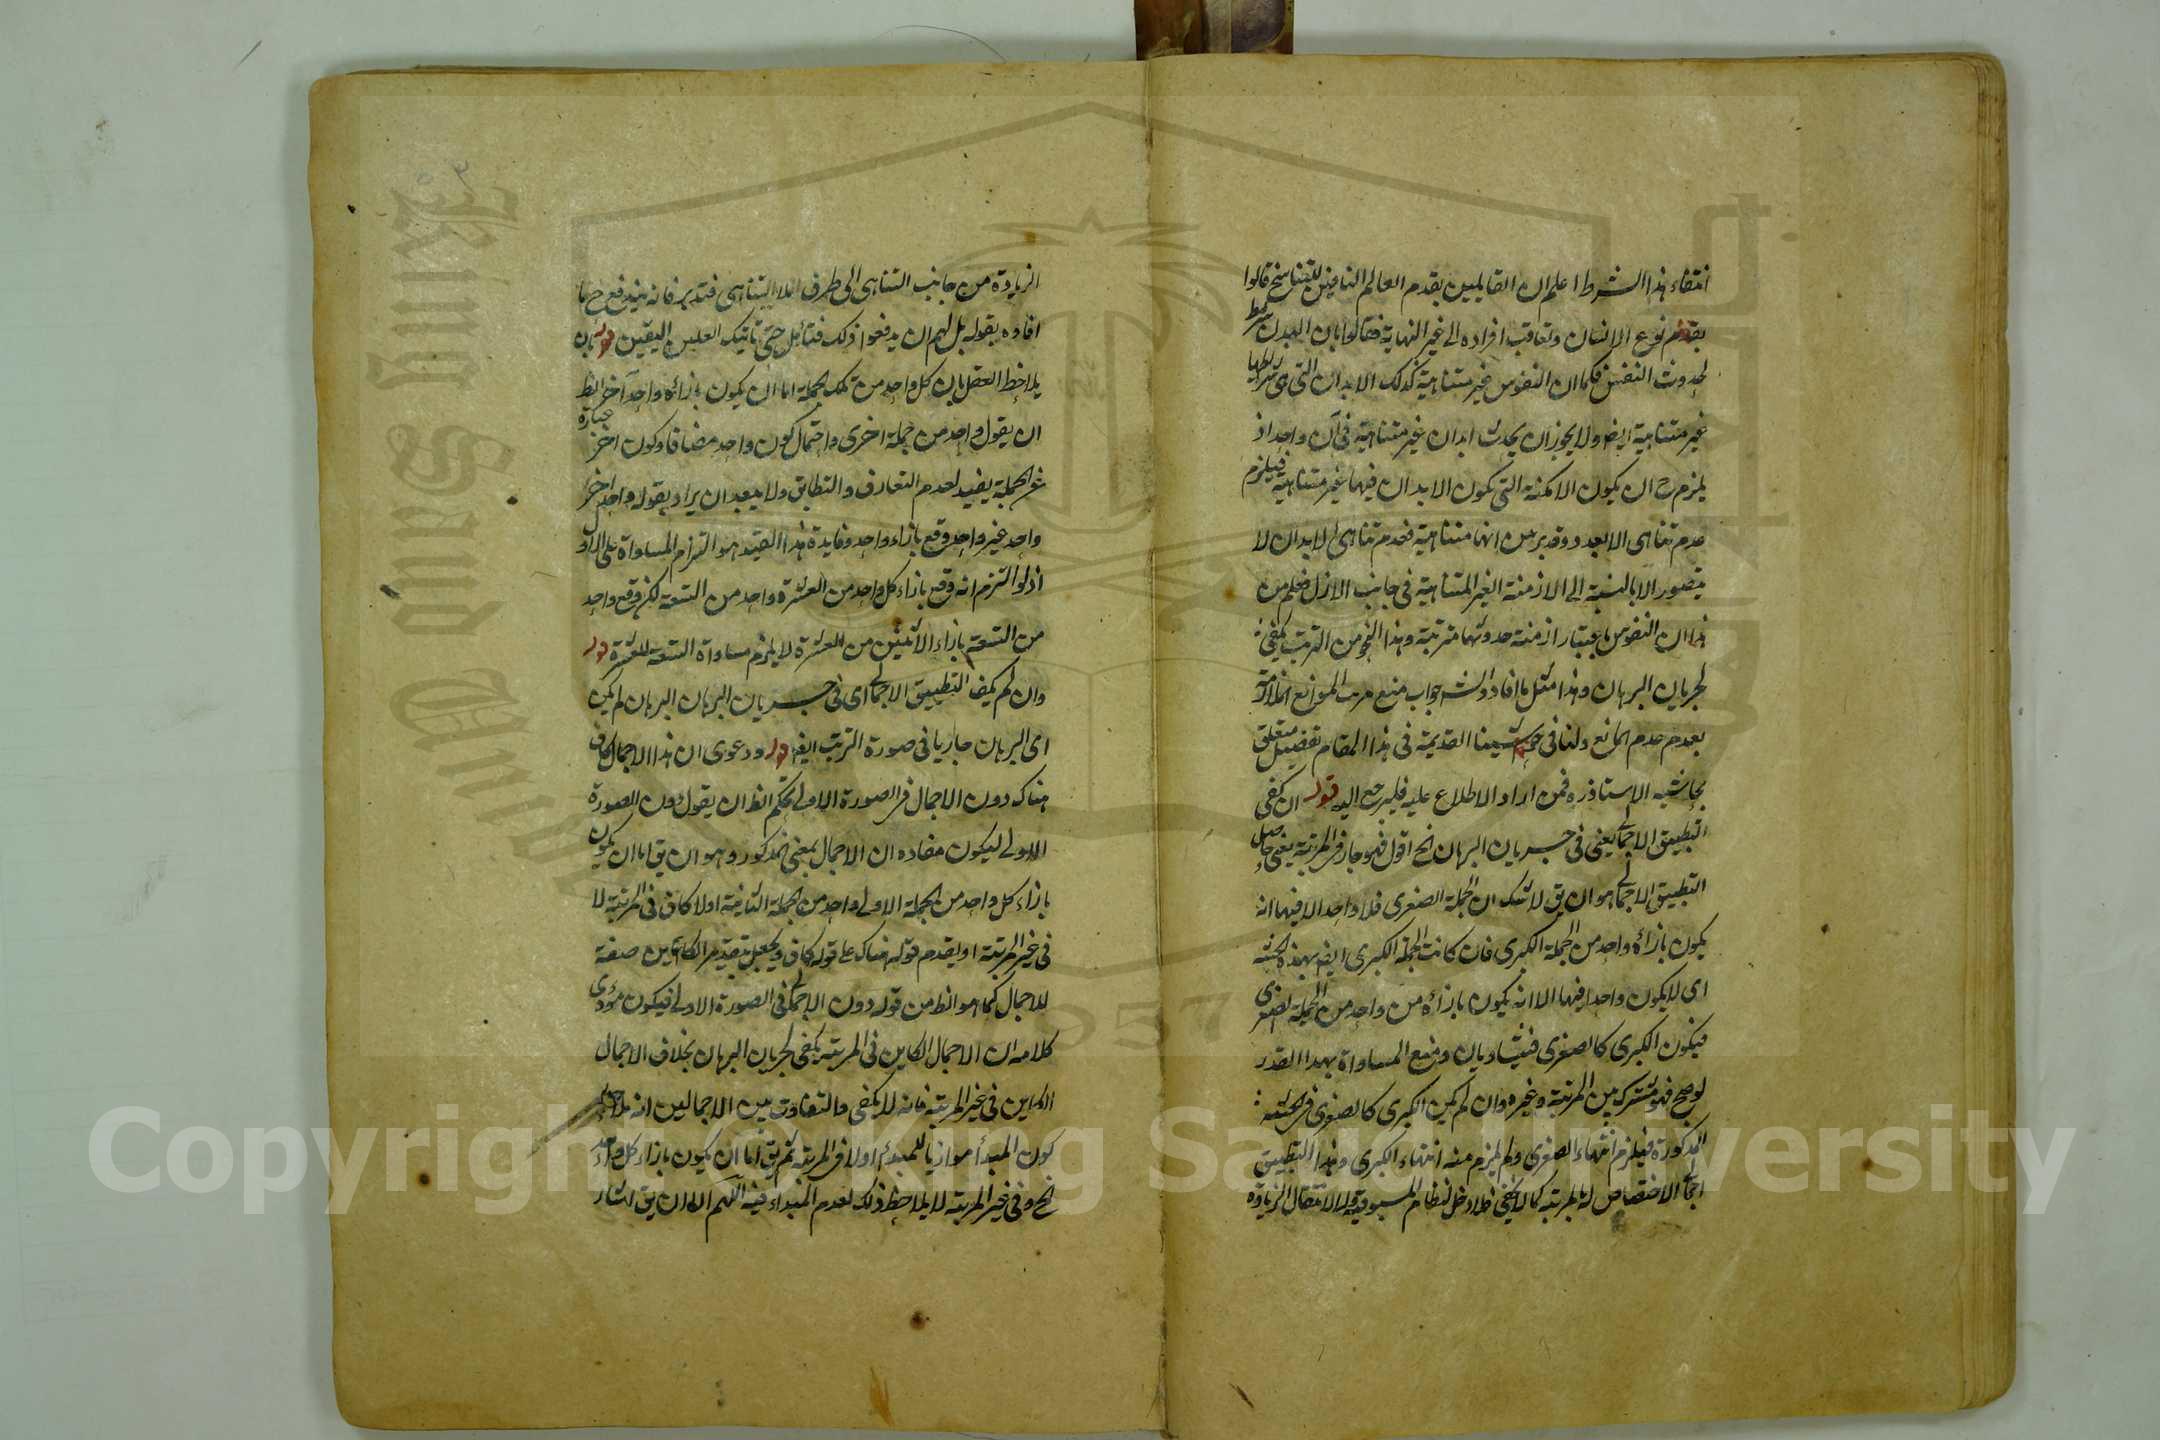 انتفاء هذا الشرط اعلم ان القايلين بقدم العالم النافين للتناسخ قالوا
بقدم نوع الانسان وتعاقب افراده الى غير النهاية فقالوا بان البدن شرط
لحدوث النفس فكما ان النفوس غير متناهية كذلك الابدان التى هى شرايطها
غير متناهية ايضا ولا يجوز ان يحدث ابدان غير متناهية فى آن واحد اذ
يلزم ح ان يكون الامكنة التى تكون الابدان فيها غير متناهية فيلزم
عدم تناهى الابعاد وقد برهن انها متناهية فعدم تناهى الابدان لا
يتصور الا بالنسبة الى الازمنة الغير المتناهية فى جانب الازل فعلم من
هذا ان النفوس باعتبار ازمنة حدوثها مترتبة وهذا النحو من الترتب يكفى
لجريان البرهان وهذا مثل ما افاد والشر جواب منع من الموانع
بعدم عدم المانع ولنا فى حواشينا القديمة فى هذا المقام تفصيل متعلق
بحاشية الاستاذ ره فمن اراد الاطلاع عليه فليرجع اليه قوله ان كفى
التطبيق الاجمالى يعنى فى جريان البرهان الخ اقول فهو جار فى غير المرتبة يعنى حاصل
التطبيق الاجمالى هو ان يق لا شك ان الجملة الصغرى فلا واحد الا فيها انه
يكون بازائه واحد من الجملة الكبرى فان كانت الجملة الكبرى ايضا بهذه الحيثية
اى لا يكون واحد فيها الا انه يكون بازائه من واحد من الجملة الصغرى
فيكون الكبرى كالصغرى فيتساويان ومنع المساواة بهذا القدر
لو صح فهو مشترك بين المرتبة وغيره وان لم يكن الكبرى كالصغرى فى الحيثية
المذكورة فيلزم انتهاء الصغرى ولم يلزم منه انتهاء الكبرى وهذا التطبيق
اجمالى لا اختصاص له بالمرتبة كما لا يخفى فلا دخل لنظام المسبوقية ولا لانتقال الزيادة
الزيادة من جانب التناهى الى طرف اللاتناهى فتدبر فانه يندفع ح ما
افاده بقوله بل لهم ان يدفعوا ذلك فتأمل حتى تأتيك اليقين قوله بان
يلاحظ العقل بان كل واحد من تلك الجملة اما ان يكون بازائه واحد آخر الظ
ان يقول واحد من جملة اخرى واحتمال كون واحد مضافا وكون اخر عبارة
عن الجملة بعيد لعدم التعارف والتطابق ولا يبعد ان يراد بقوله واحد اخر
واحد غير واحد وقع بازاء واحد وفايدة هذا القيد هو التزام المساواة على
اذ لو التزم انه وقع بازاء كل واحد من العشرة واحد من التسعة لكن وقع واحد
من التسعة بازاء الاثنين من العشرة لا يلزم مساواة التسعة للعشرة قوله
وان لم يكف التطبيق الاجمالى اى فى جريان البرهان البرهان لم يكن
اى البرهان جاريا فى صورة الترتب ايضا قوله ودعوى ان هذا الاجمال كاف
هناك دون الاجمال فى الصورة الاولى تحكم الظ ان يقول دون الصورة
الاولى ليكون مفاده ان الاجمال بمعنى المذكور وهو ان يق اما ان يكون
بازاء كل واحد من الجملة الاولى واحد من الجملة الثانية اولا كاف فى المرتبة لا
فى غير المرتبة او يقدم قوله هناك على قوله كاف ويجعل بتقدير الكاين صفة
للاجمال كما هو الظ من قوله دون الاجمال فى الصورة الاولى فيكون مؤدى
كلامه ان الاجمال الكاين فى المرتبة يكفى لجريان البرهان بخلاف الاجمال
الكاين فى غير المرتبة فانه لا يكفى والتفاوت بين الاجمالين انه يلاحظ
كون المبدأ موازيا للمبدأ اولا فى المرتبة ثم يق اما ان يكون بازاء كل واحد
الخ وفى غير المرتبة لا يلاحظ ذلك لعدم المبداء فيه اللهم الا ان يق اشار